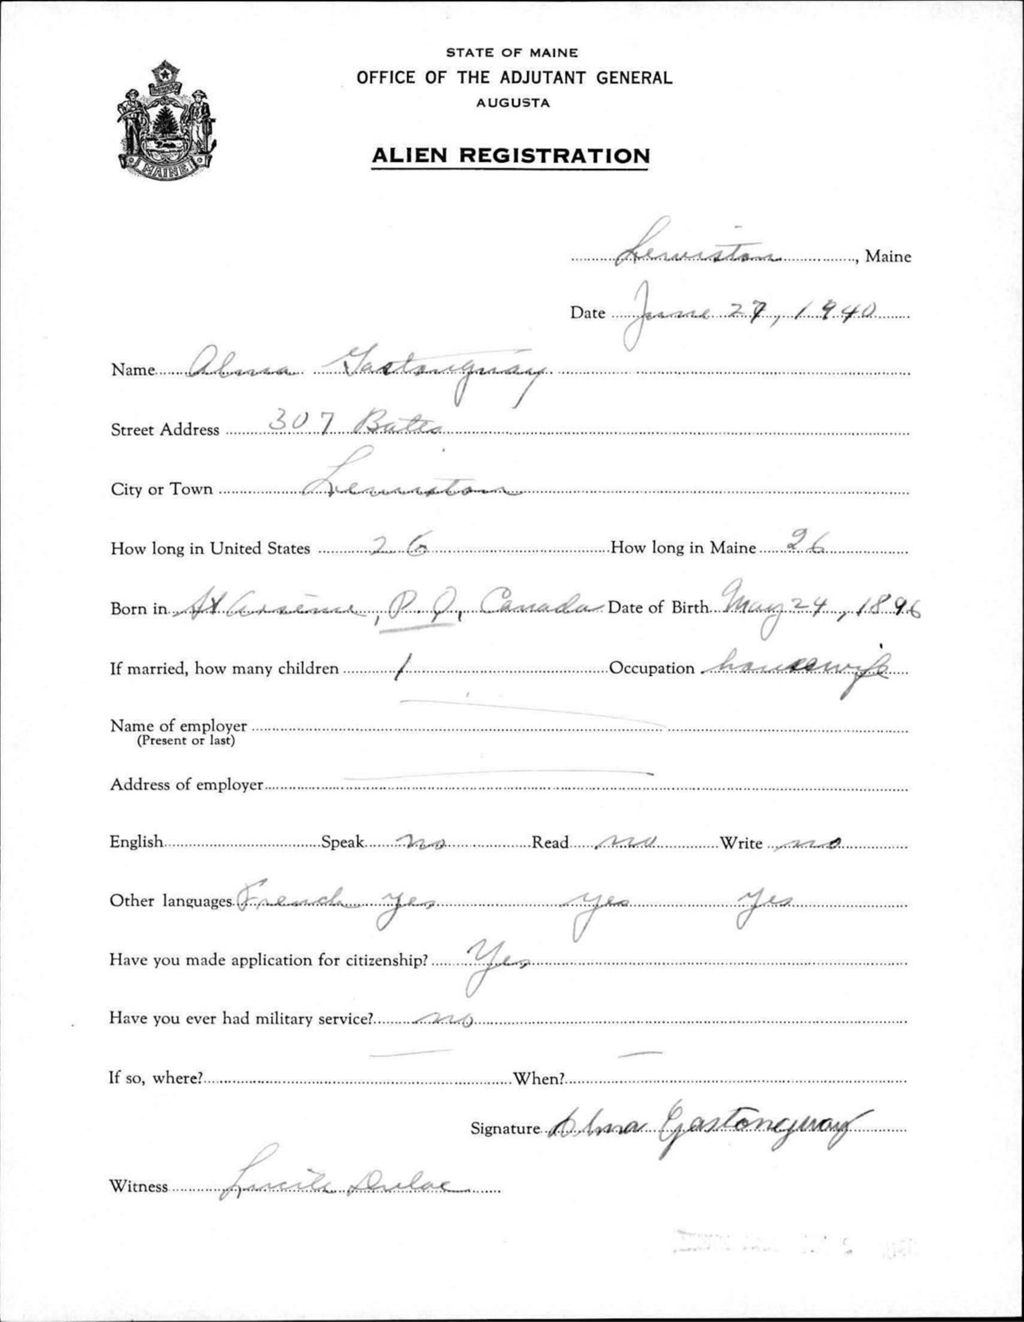 STATE OF MAINE
OFFICE OF THE ADJUTANT GENERAL
AUGUSTA
ALIEN REGISTRATION
MAINE
Lewiston, Maine
Date June 27, 1940
Name Alma Gastonguay
Street Address 307 Bates
City or Town Lewiston
How long in United States 26 How long in Maine 26
Born in St Arsène, P. Q, Canada Date of Birth May 24, 1896
If married, how many children 1 Occupation housewife
Name of employer
(Present or last)
Address of employer
English Speak no Read no Write no
Other languages French yes yes yes
Have you made application for citizenship? Yes
Have you ever had military service? no
If so, where? When?
Signature Alma Gastonguay
Witness Lucile Dulac